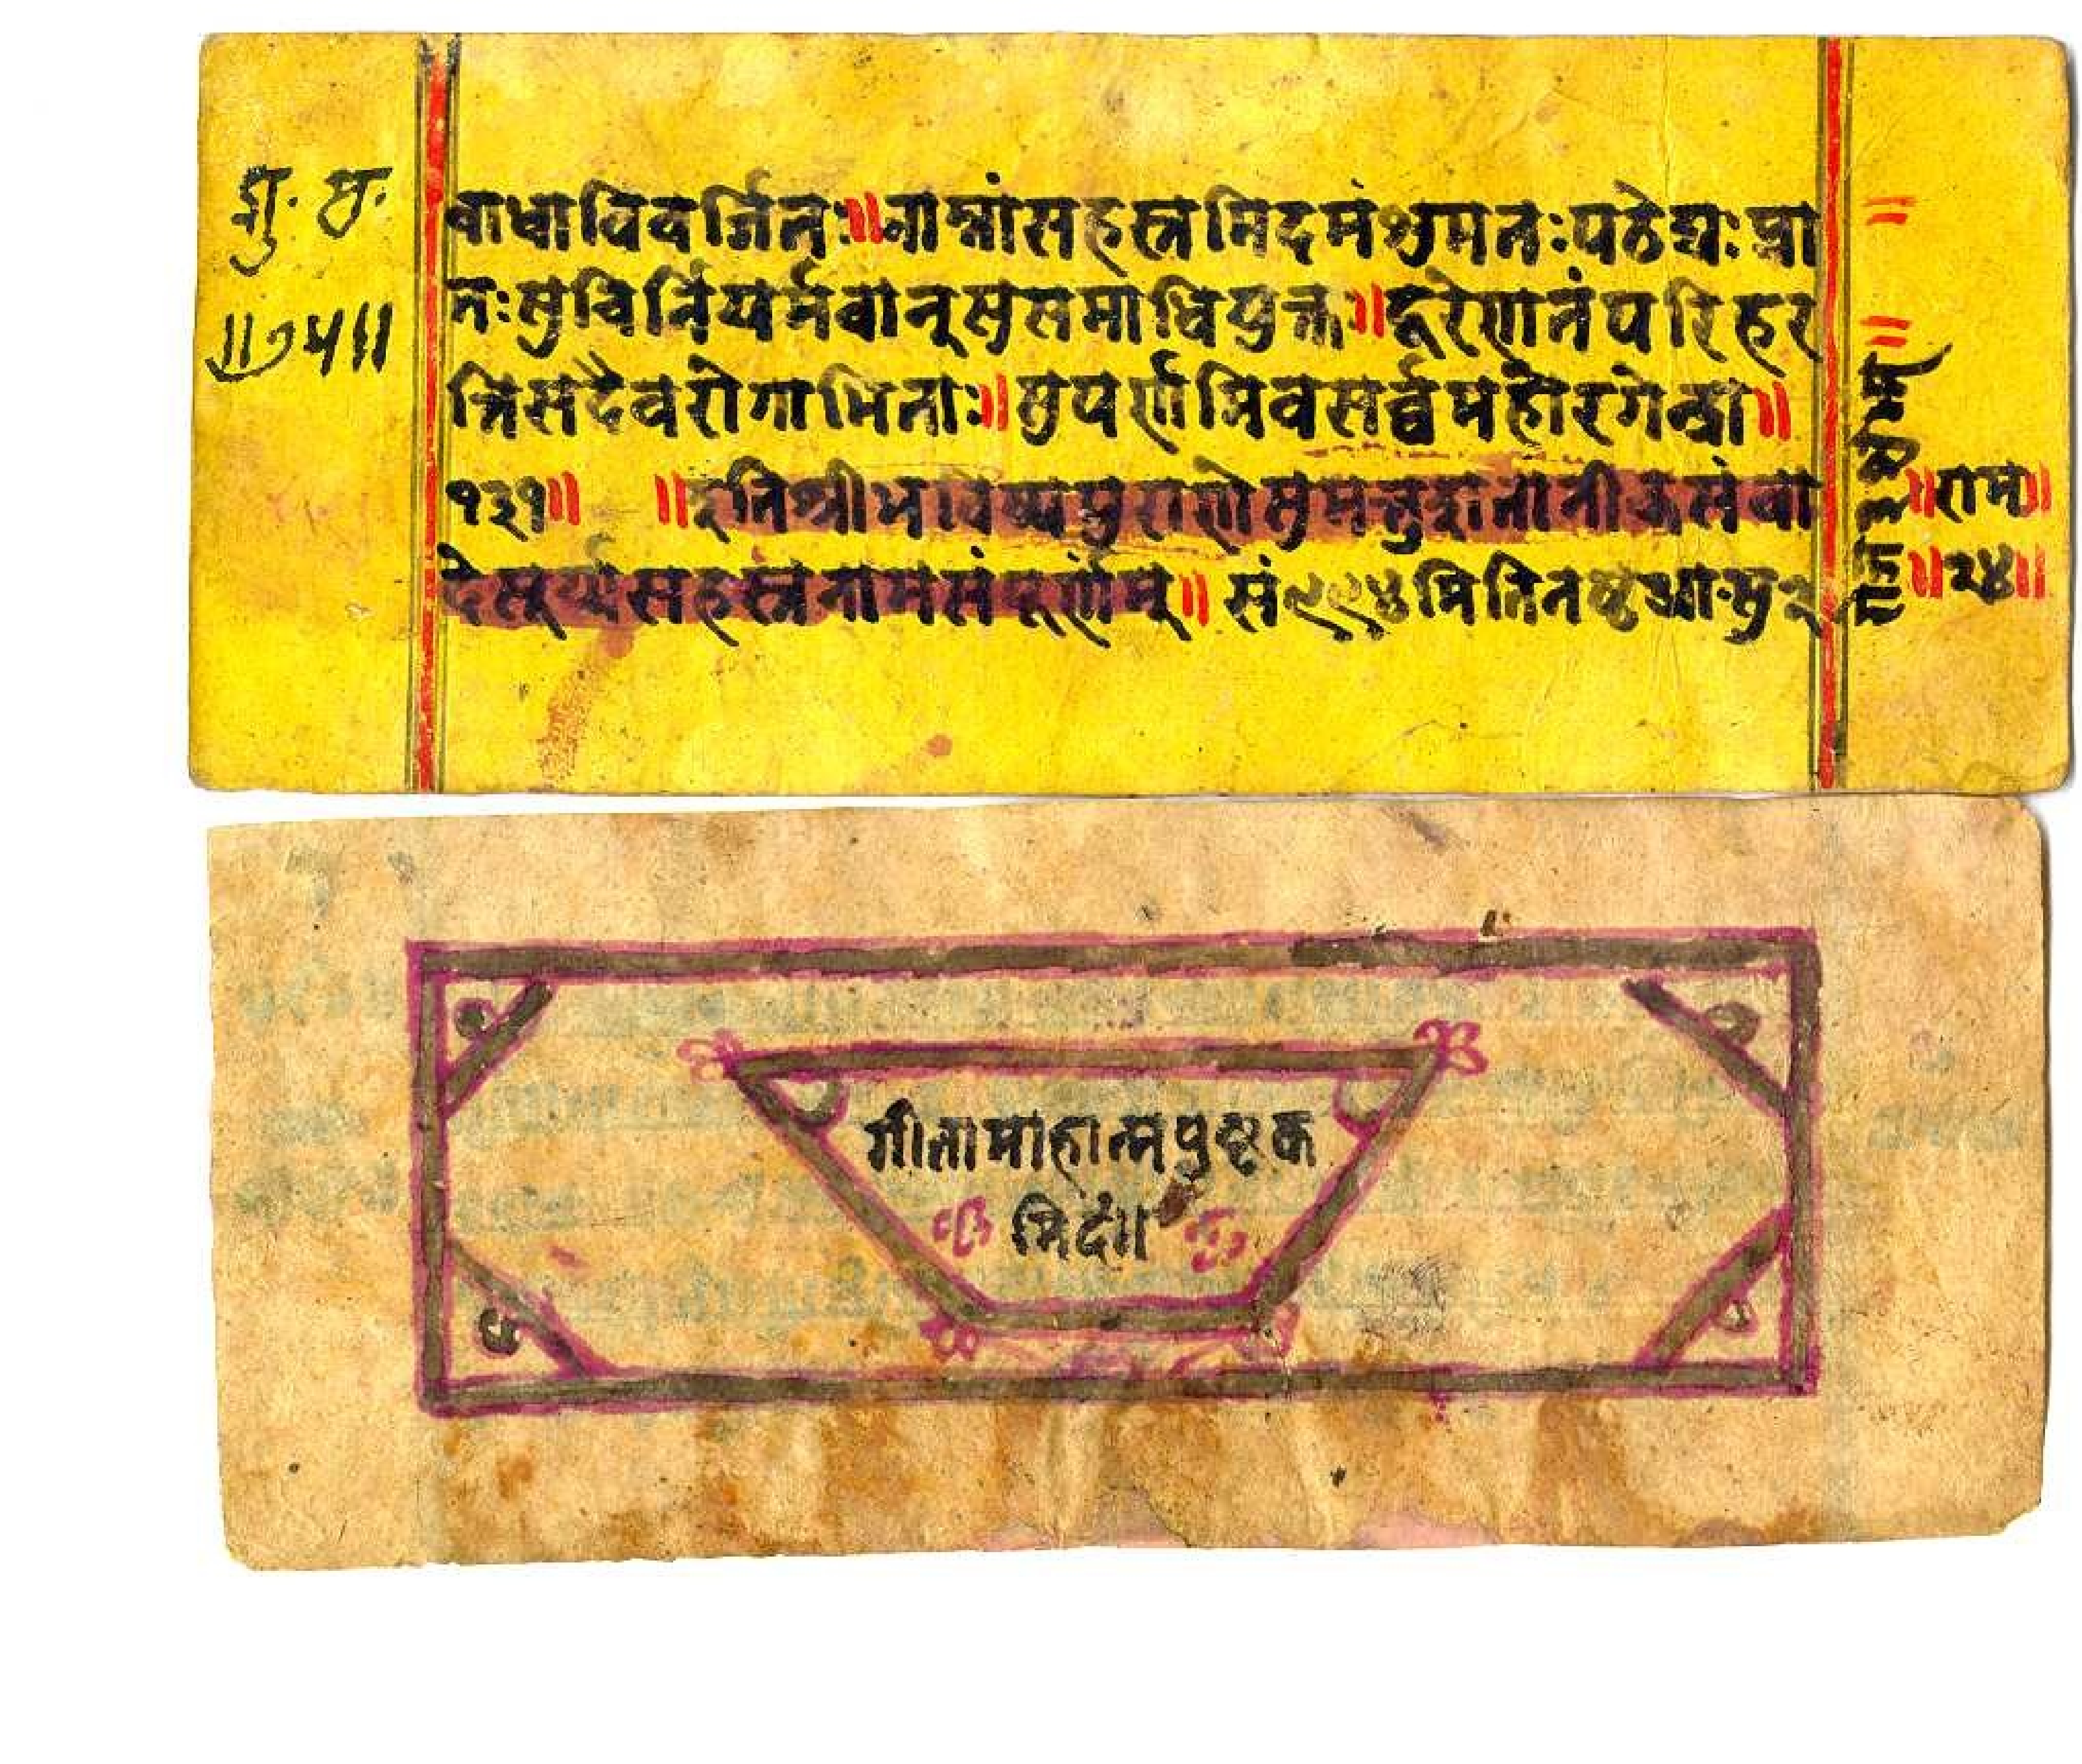 सु. स.
॥७५॥
वाधाविवर्जितः॥नाम्नांसहस्रमिदमंशुमतःपठेद्यःप्रा
तःसुचिर्नियमवान्सुसमाधियुक्तः॥दूरेणतंपरिहर
न्तिसदैवरोगाभिताः॥सुपर्णमिवसर्व्वमहोरगेन्द्रा॥
१३१॥ ॥इतिश्रीभविष्यपुराणेसुमन्तुशतानीकसंवा
देसूर्य्यसहस्रनामसंपूर्णम्॥ सं
॥राम॥
॥२४॥
गीतामाहात्मपुस्तक
मिदं॥